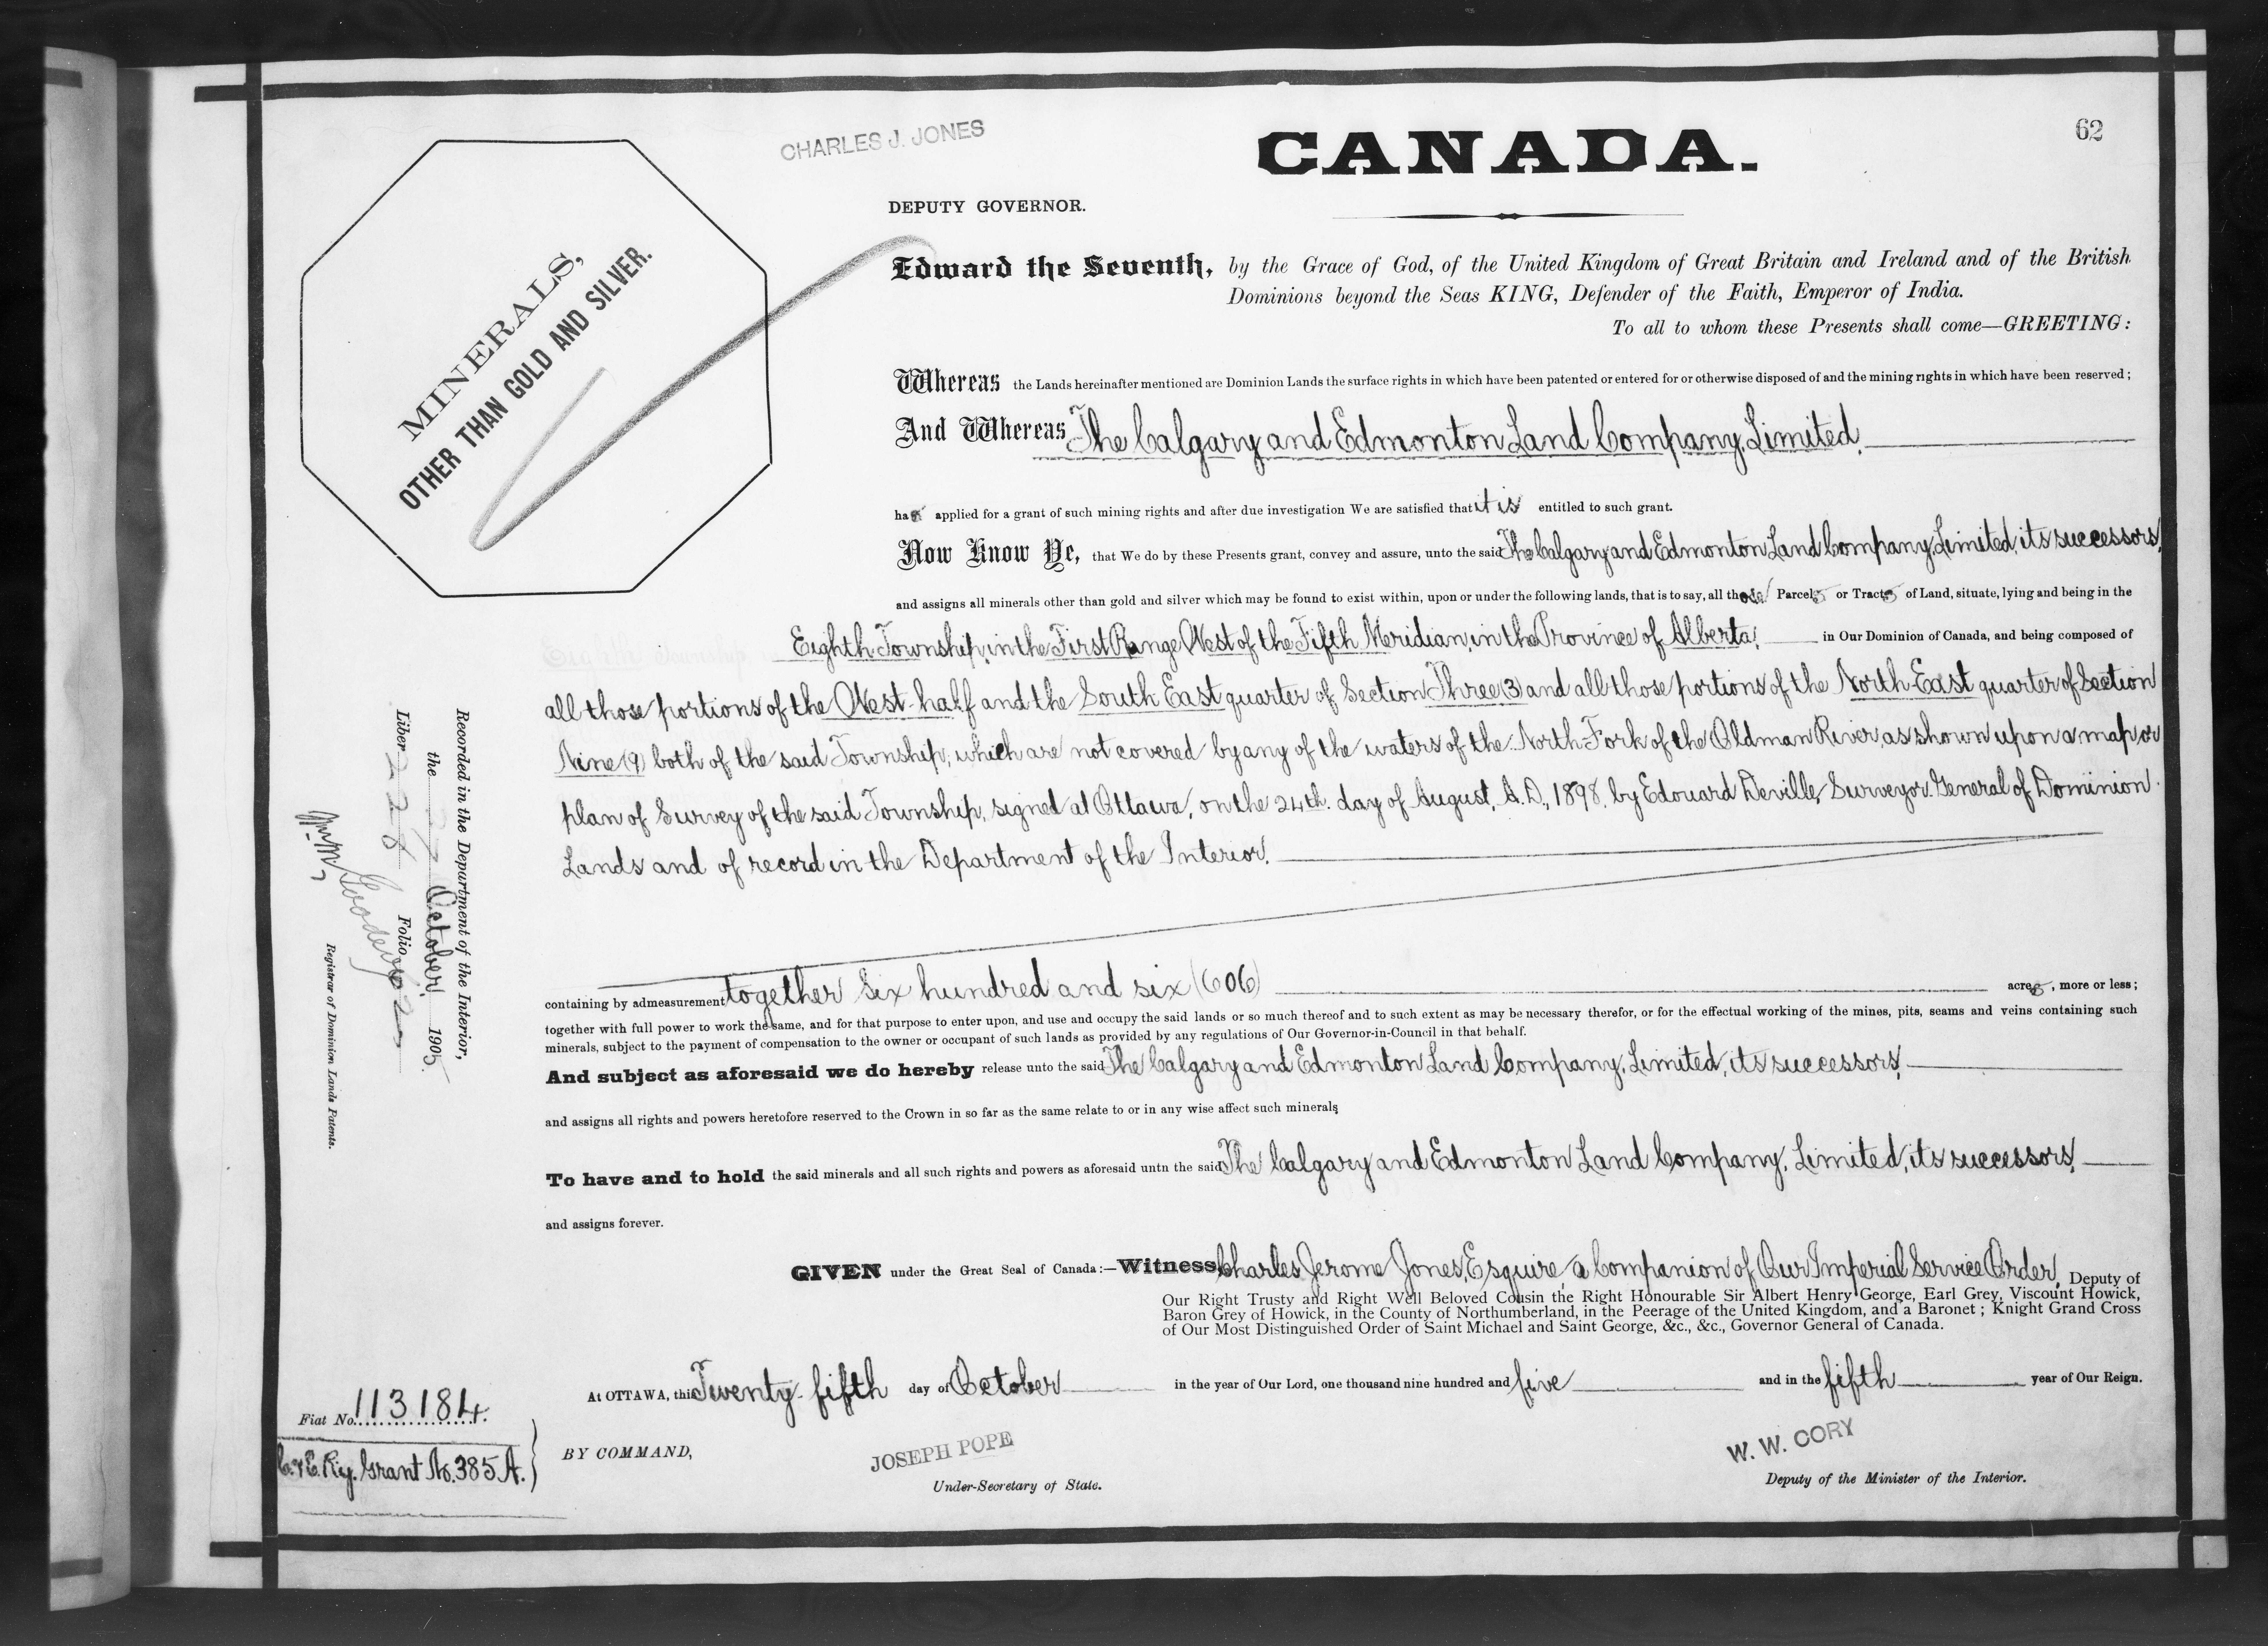 62
CHARLES J. JONES
CANADA.
DEPUTY GOVERNOR.
MINERALS,
OTHER THAN GOLD AND SILVER.
Edward the Seventh, by the Grace of God, of the United Kingdom of Great Britain and Ireland and of the British
Dominions beyond the Seas KING, Defender of the Faith, Emperor of India.
To all to whom these Presents shall come—GREETING:
Whereas the Lands hereinafter mentioned are Dominion Lands the surface rights in which have been patented or entered for or otherwise disposed of and the mining rights in which have been reserved;
And Whereas The Calgary and Edmonton Land Company, Limited,
has applied for a grant of such mining rights and after due investigation We are satisfied that it is entitled to such grant.
Now Know Ye, that We do by these Presents grant, convey and assure, unto the said The Calgary and Edmonton Land Company, Limited, its successors,
and assigns all minerals other than gold and silver which may be found to exist within, upon or under the following lands, that is to say, all those Parcels or Tracts of Land, situate, lying and being in the
Eighth Township, in the First Range West of the Fifth Meridian, in the Province of Alberta, in Our Dominion of Canada, and being composed of
all those portions of the West half and the South East quarter of Section Three (3) and all those portions of the North East quarter of Section
Nine (9) both of the said Township, which are not covered by any of the waters of the North Fork of the Oldman River, as shown upon a map or
plan of Survey of the said Township, signed at Ottawa, on the 24th. day of August, A.D., 1898, by Edouard Deville, Surveyor General of Dominion
Lands and of record in the Department of the Interior.
containing by admeasurement together six hundred and six (606) acres, more or less;
together with full power to work the same, and for that purpose to enter upon, and use and occupy the said lands or so much thereof and to such extent as may be necessary therefor, or for the effectual working of the mines, pits, seams and veins containing such
minerals, subject to the payment of compensation to the owner or occupant of such lands as provided by any regulations of Our Governor-in-Council in that behalf.
And subject as aforesaid we do hereby release unto the said The Calgary and Edmonton Land Company, Limited, its successors,
and assigns all rights and powers heretofore reserved to the Crown in so far as the same relate to or in any wise affect such minerals
To have and to hold the said minerals and all such rights and powers as aforesaid untn the said The Calgary and Edmonton Land Company, Limited, its successors,
and assigns forever.
GIVEN under the Great Seal of Canada:—Witness Charles Jerome Jones, Esquire, a Companion of Our Imperial Service Order, Deputy of
Our Right Trusty and Right Well Beloved Cousin the Right Honourable Sir Albert Henry George, Earl Grey, Viscount Howick,
Baron Grey of Howick, in the County of Northumberland, in the Peerage of the United Kingdom, and a Baronet; Knight Grand Cross
of Our Most Distinguished Order of Saint Michael and Saint George, &c., &c., Governor General of Canada.
At OTTAWA, this Twenty-fifth day of October in the year of Our Lord, one thousand nine hundred and five and in the fifth year of Our Reign.
BY COMMAND,
JOSEPH POPE
Under-Secretary of State.
W. W. CORY
Deputy of the Minister of the Interior.
Recorded in the Department of the Interior,
the 27 October 1905.
Liber 228 Folio 62
Registrar of Dominion Lands Patents.
Fiat No. 113184.
C. & E. Ry. Grant No. 385 A.